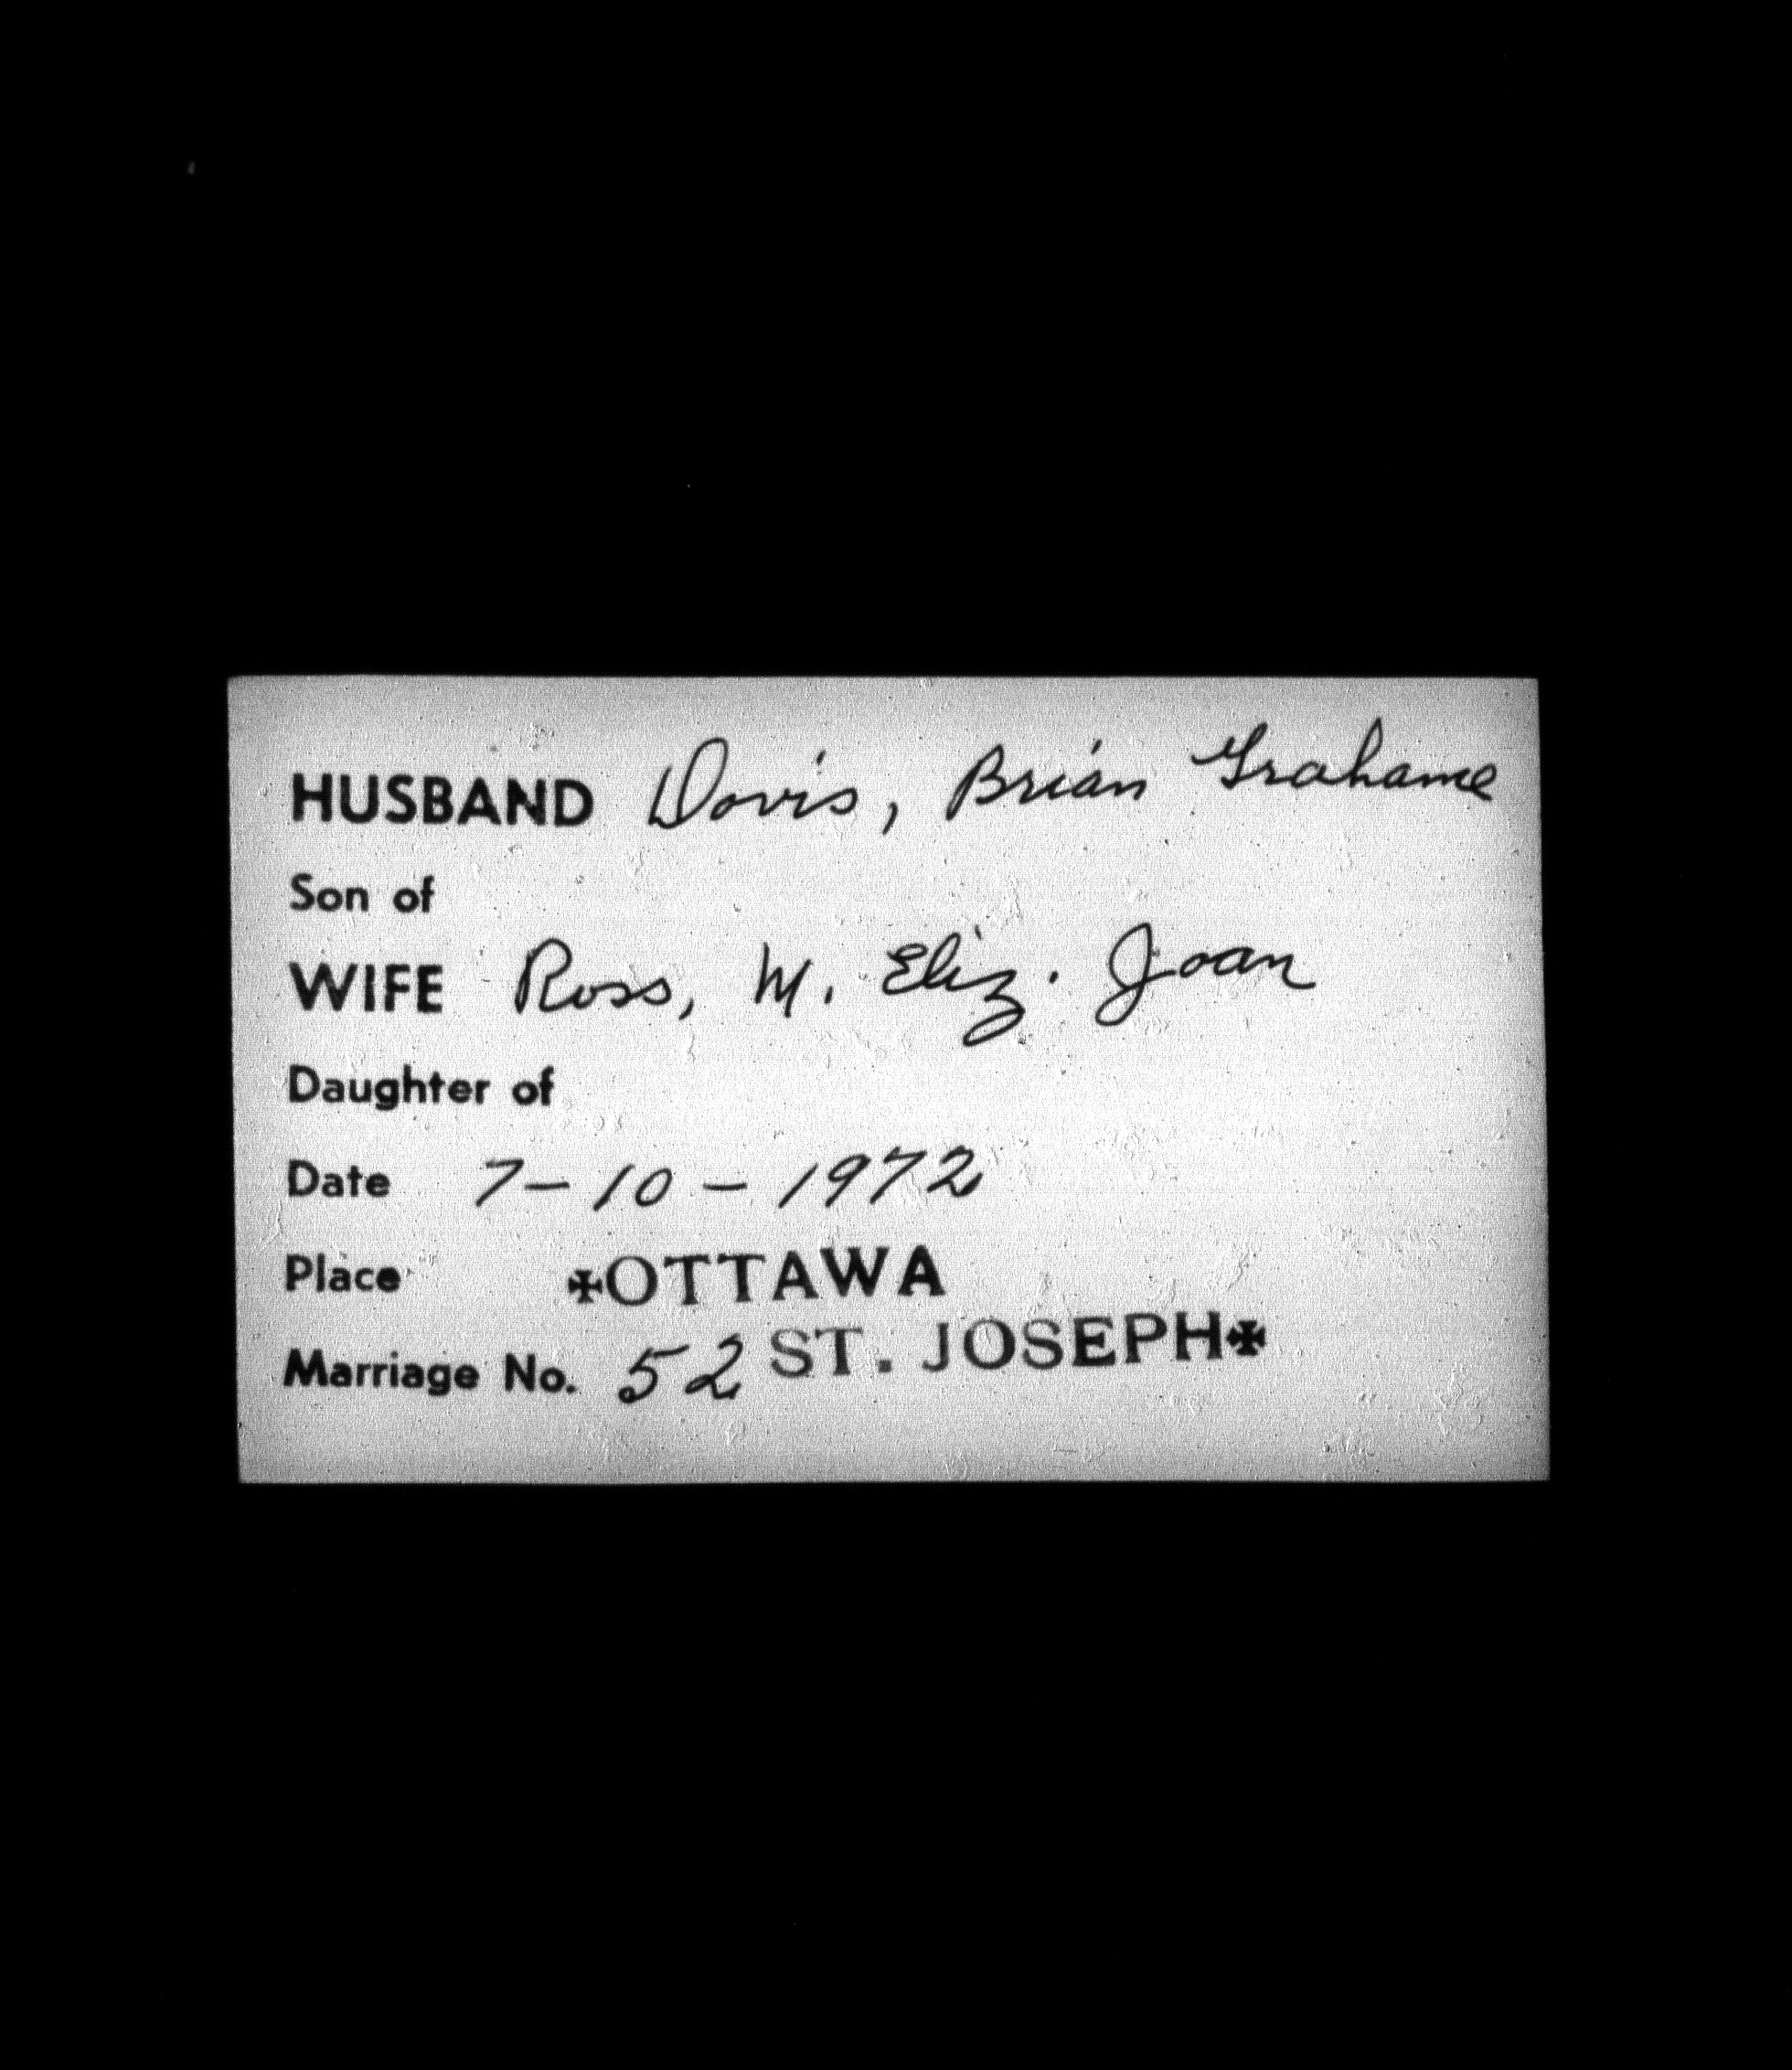 HUSBAND Davis, Brian Grahame
Son of
WIFE Ross, M. Eliz. Joan
Daughter of
Date 7-10-1972
Place ✠OTTAWA
Marriage No. 52 ST. JOSEPH✠